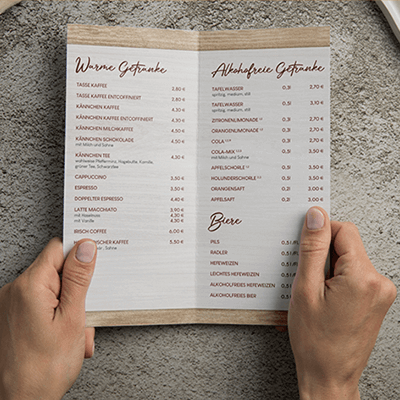 Warme Getränke
TASSE KAFFEE 2,80 €
TASSE KAFFEE ENTCOFFINIERT 2,80 €
KÄNNCHEN KAFFEE 4,30 €
KÄNNCHEN KAFFEE ENTCOFFINIERT 4,30 €
KÄNNCHEN MILCHKAFFEE 4,50 €
KÄNNCHEN SCHOKOLADE 4,50 €
mit Milch und Sahne
KÄNNCHEN TEE 4,30 €
wahlweise Pfefferminz, Hagebutte, Kamille,
grüner Tee, Schwarztee
CAPPUCCINO 3,50 €
ESPRESSO 3,50 €
DOPPELTER ESPRESSO 4,40 €
LATTE MACCHIATO 3,90 €
mit Haselnuss 4,30 €
mit Vanille 4,30 €
IRISCH COFFEE 6,00 €
KAFFEE 5,50 €
Sahne
Alkoholfreie Getränke
TAFELWASSER 0,2l 2,70 €
spritzig, medium, still
TAFELWASSER 0,4l 3,70 €
spritzig, medium, still
ZITRONENLIMONADE 0,2l 2,70 €
ORANGENLIMONADE 0,2l 2,70 €
COLA 0,2l 2,70 €
COLA-MIX 0,4l 3,50 €
mit Milch und Sahne
APFELSCHORLE 0,4l 3,50 €
HOLUNDERSCHORLE 0,4l 3,50 €
ORANGENSAFT 0,2l 3,00 €
APFELSAFT 0,2l 3,00 €
Biere
PILS 0,5 l
RADLER 0,5 l
HEFEWEIZEN 0,5 l
LEICHTES HEFEWEIZEN 0,5 l
ALKOHOLFREIES HEFEWEIZEN 0,5 l
ALKOHOLFREIES BIER 0,5 l